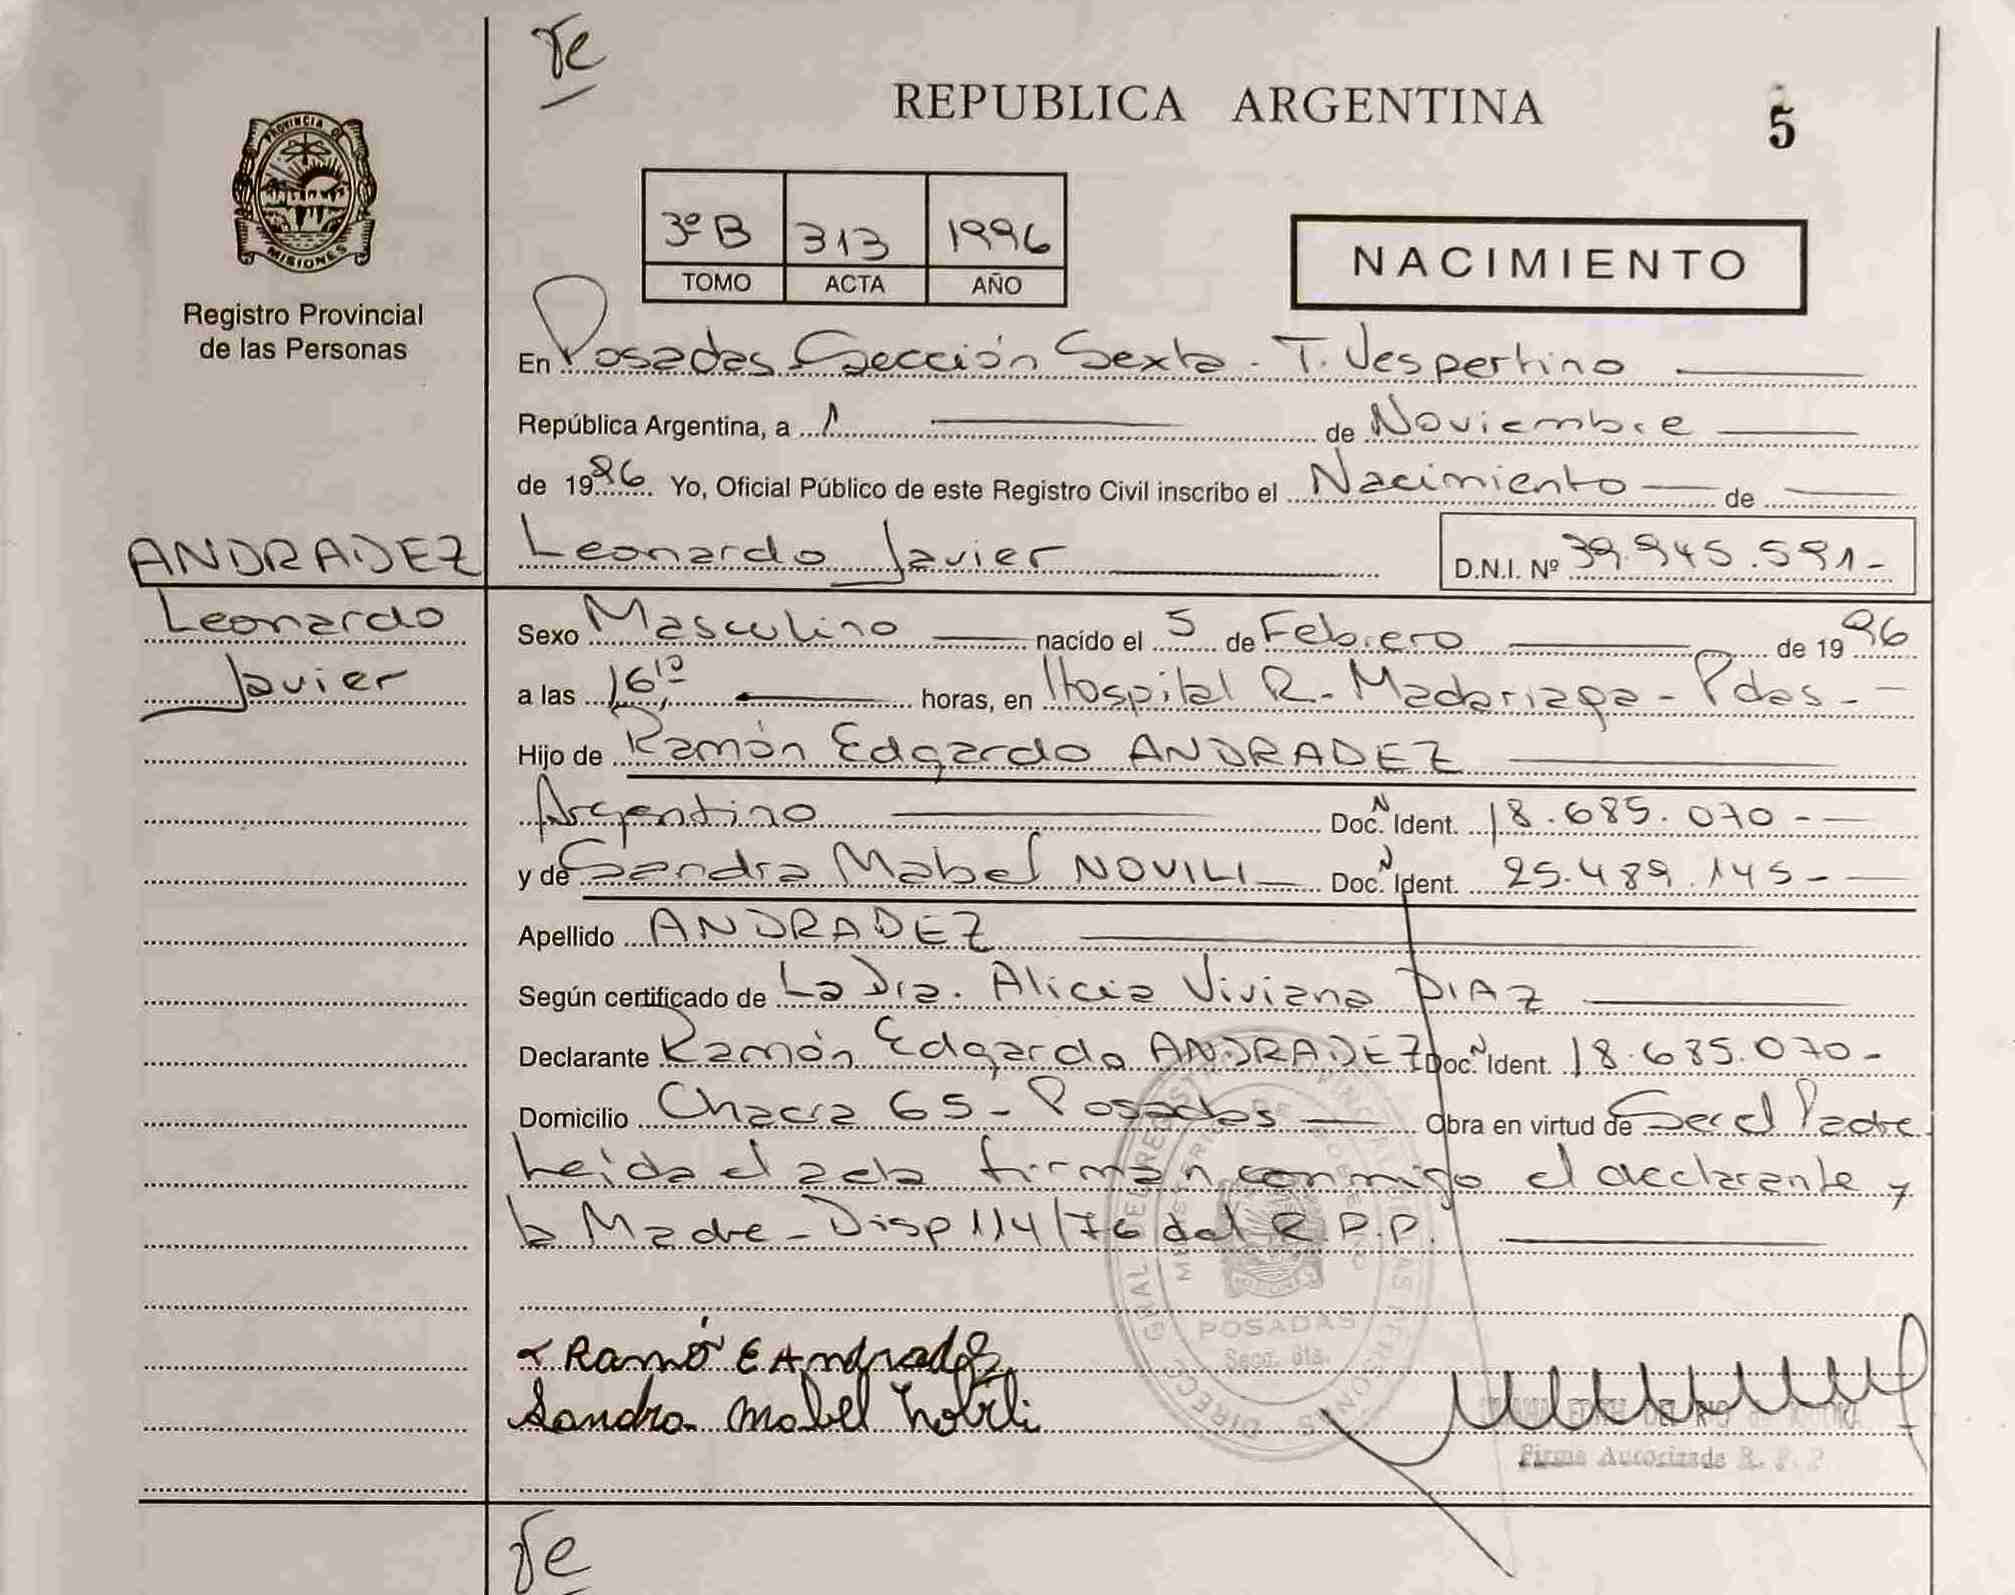 Te
REPUBLICA ARGENTINA
5
PROVINCIA DE
MISIONES
Registro Provincial
de las Personas
3º B 313 1996
TOMO ACTA AÑO
NACIMIENTO
En Posadas Sección Sexta - T. Vespertino
República Argentina, a 1 de Noviembre
de 1996 Yo, Oficial Público de este Registro Civil inscribo el Nacimiento de
ANDRADEZ
Leonardo
Javier
Leonardo Javier D.N.I. Nº 39.945.591-
Sexo Masculino nacido el 5 de Febrero de 1996
a las 16,10 horas, en Hospital R. Madariaga - Pdas -
Hijo de Ramón Edgardo ANDRADEZ
Argentino Doc. N Ident. 18.685.070 -
y de Sandra Mabel NOVILI Doc. N Ident. 25.489.145 -
Apellido ANDRADEZ
Según certificado de La Dra. Alicia Viviana DIAZ
Declarante Ramón Edgardo ANDRADEZ Doc. N Ident. 18.685.070-
Domicilio Chacra 65 - Posadas Obra en virtud de Ser el Padre
Leída el acta firman conmigo el declarante y
la Madre - Disp 114/76 del R.P.P.
POSADAS
Secc. 6ta.
Ramón E Andradez
Sandra Mabel Nobili
Firma Autorizada R. P. P
Te